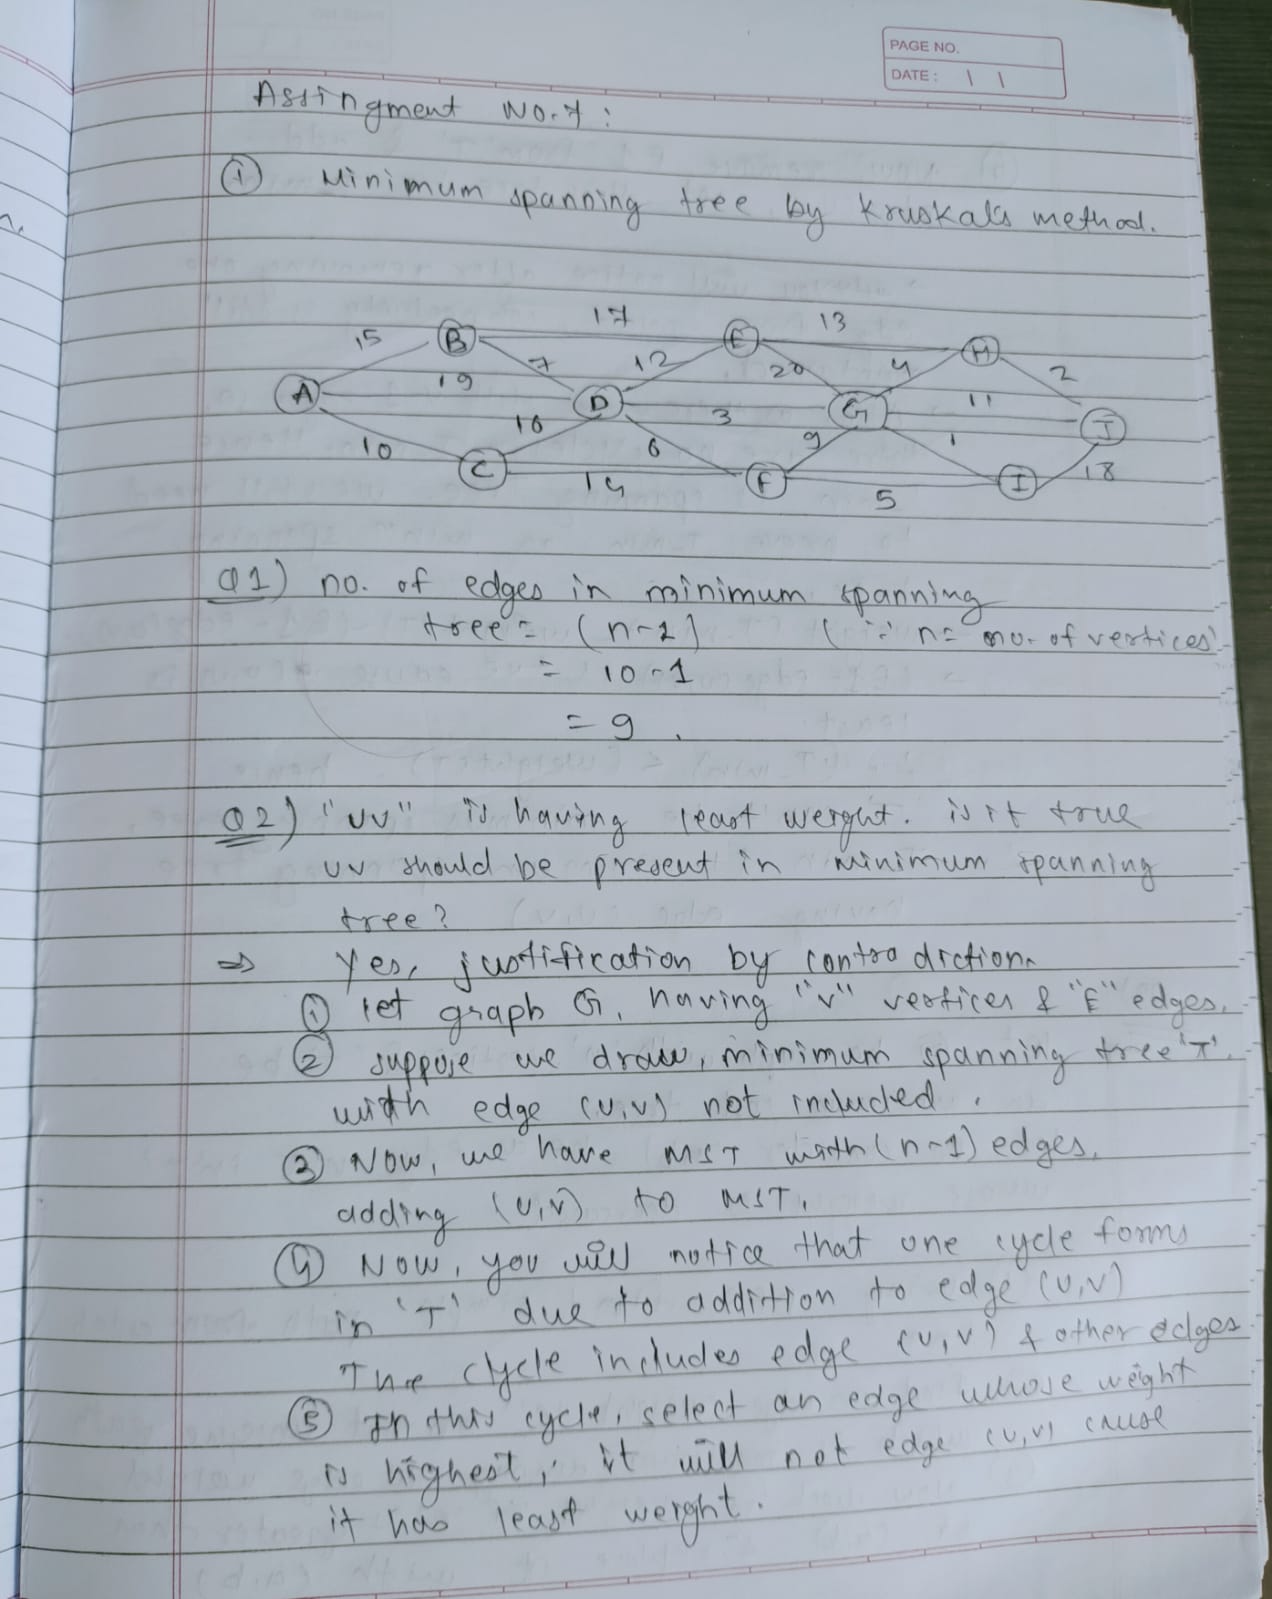 PAGE NO.
DATE :
Assingment No. 7 :
① Minimum spanning tree by Kruskals method.
15 17 13
B E H
7 12 20 4 2
A 19 D G 11 J
10 16 3 9 1
6 18
C 14 F 5 I
Q1) no. of edges in minimum spanning
tree = (n-1) (∵ n= no. of vertices)
= 10-1
= 9 .
Q2) "uv" is having least weight. is it true
uv should be present in minimum spanning
tree?
⇒ Yes, justification by contradiction.
① let graph G, having "v" vertices & "E" edges.
② suppose we draw, minimum spanning tree 'T'
with edge (u,v) not included .
③ Now, we have MST with (n-1) edges,
adding (u,v) to MST.
④ Now, you will notice that one cycle forms
in 'T' due to addition to edge (u,v)
The cycle includes edge (u,v) & other edges
⑤ In this cycle, select an edge whose weight
is highest, it will not edge (u,v) cause
it has least weight.